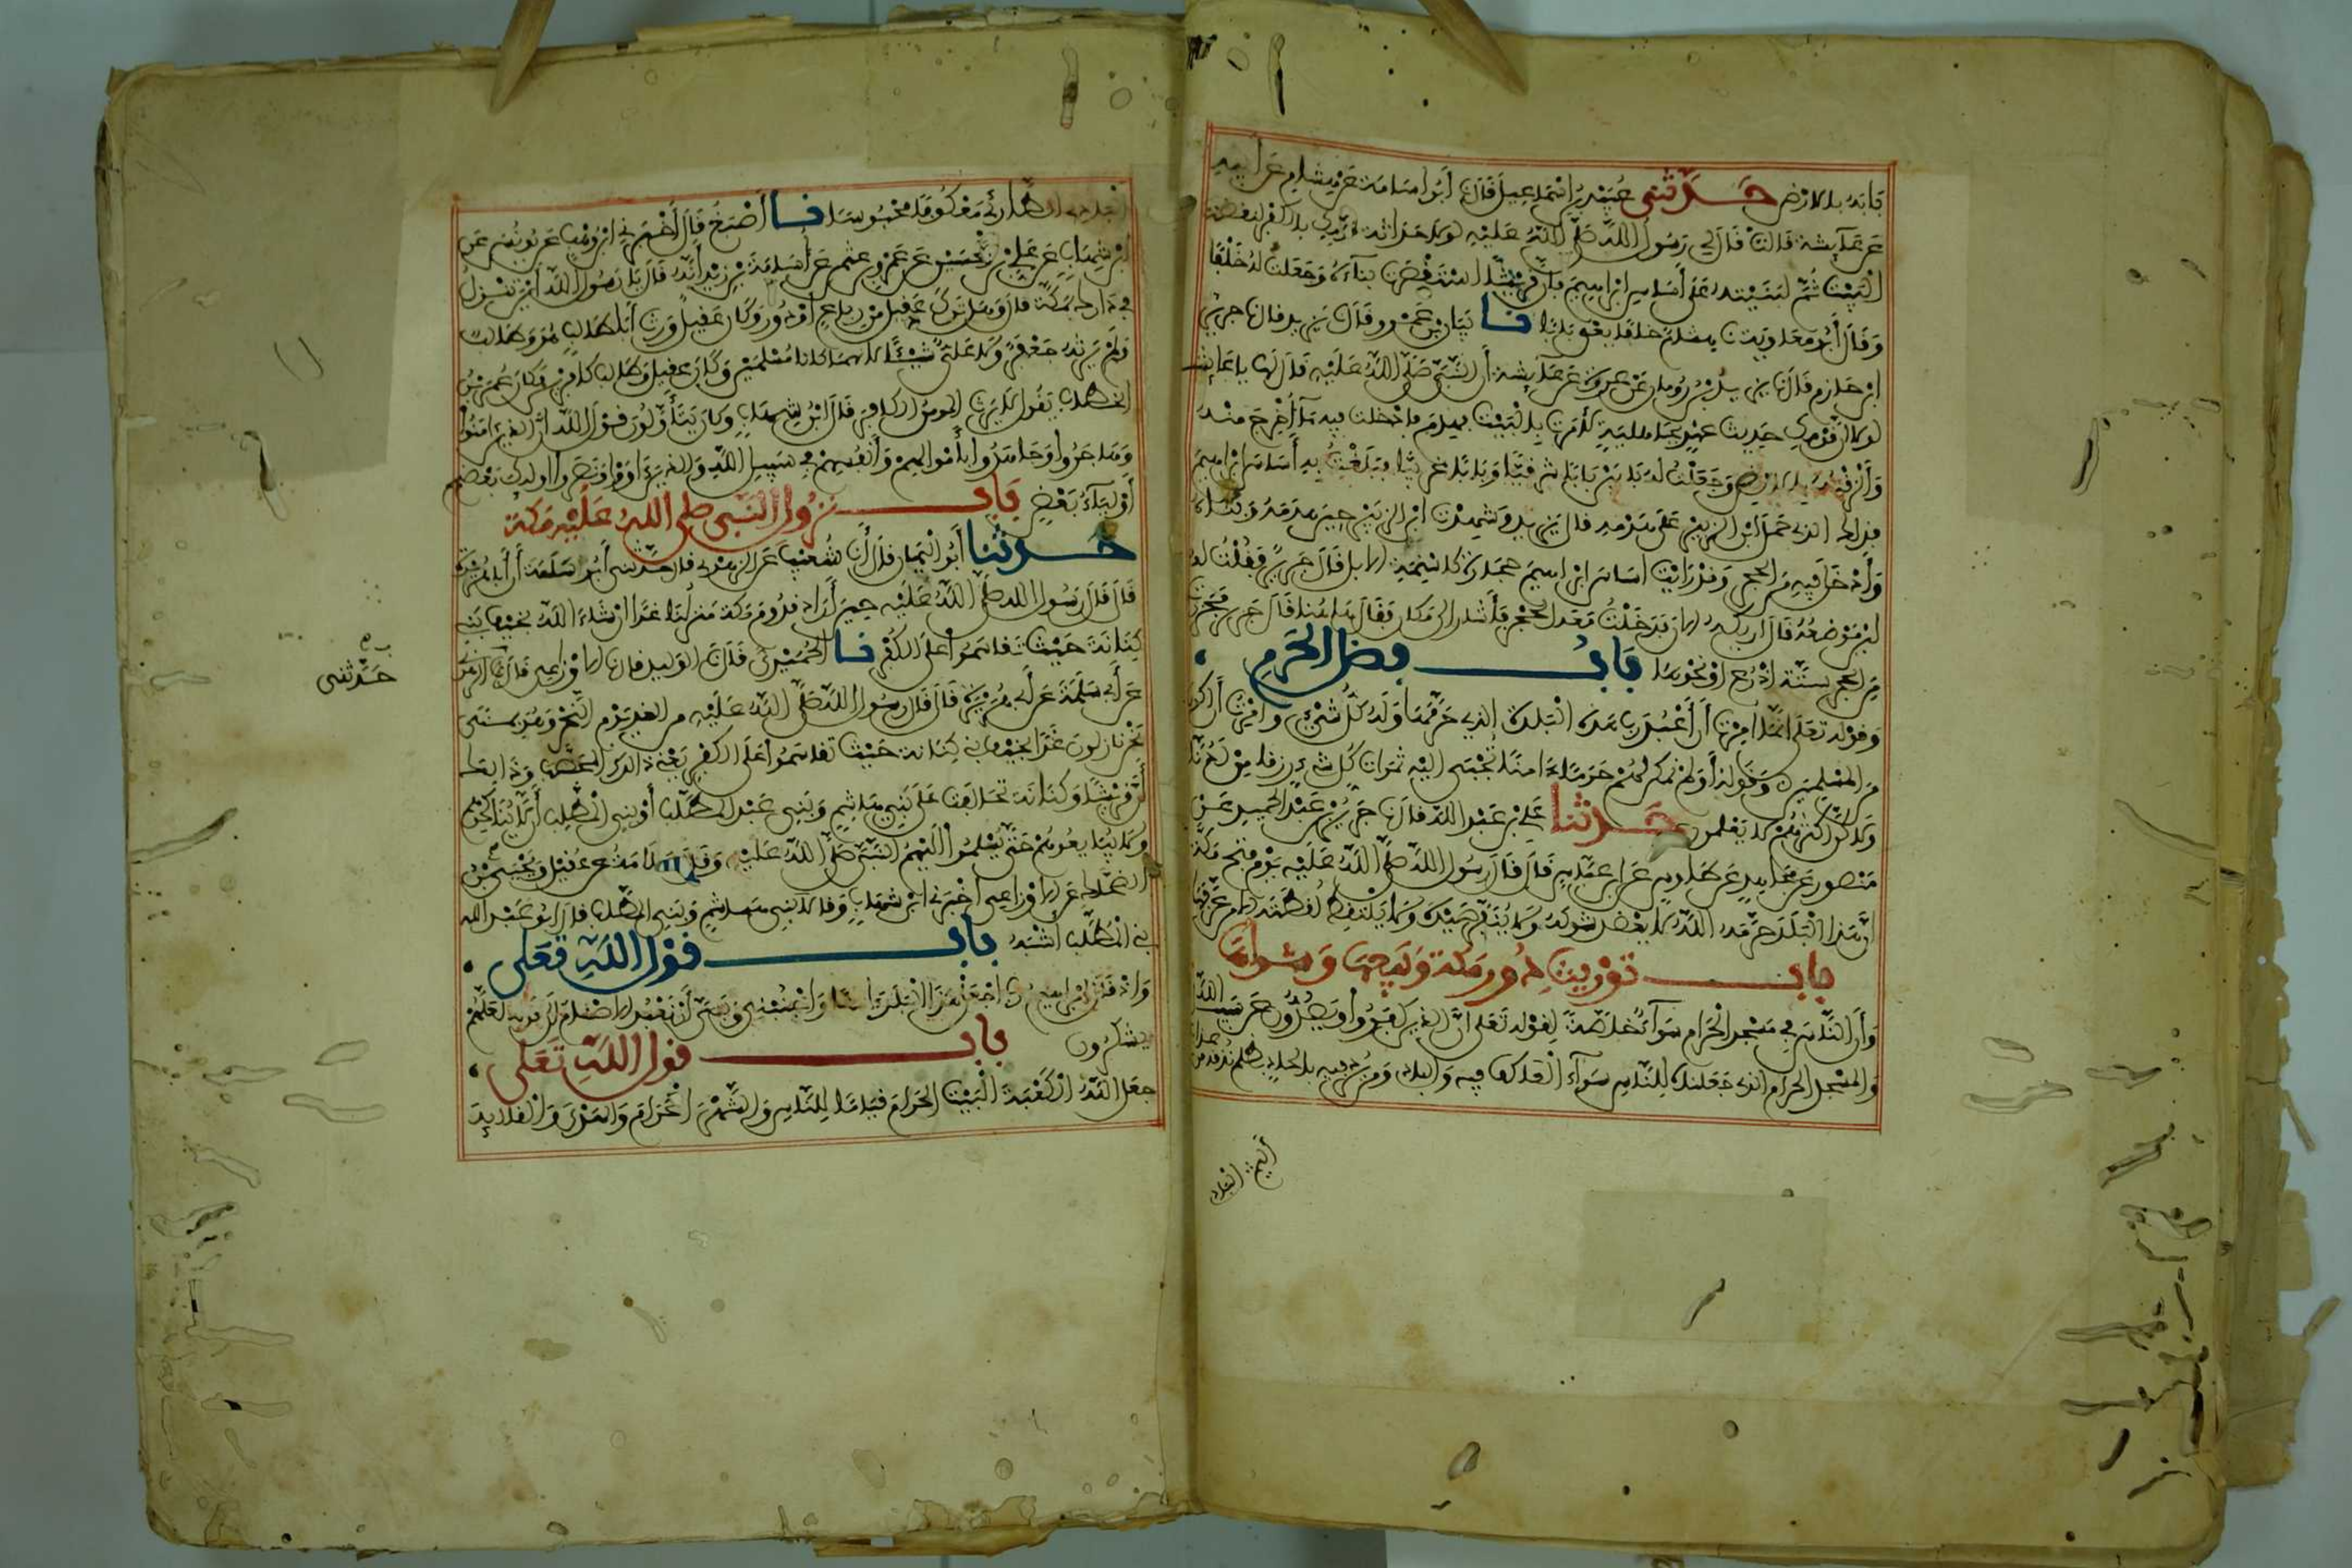 فابه بالارض حدثني عبيد بن اسماعيل قال نا ابو اسامة عن هشام عن ابيه
عن عائشة قالت قال لي رسول الله صلى الله عليه لولا حداثة قومك بالكفر لنقضت
البيت ثم لبنيته على أساس ابراهيم فان قريشا استقصرت بناءه وجعلت له خلفا
وقال أبو معاوية نا هشام خلفا يعني بابا نا بيان بن عمرو قال نا يزيد قال نا جرير
ابن حازم قال نا يزيد بن رومان عن عروة عن عائشة أن النبي صلى الله عليه قال لها يا عائشة
لولا أن قومك حديث عهد بجاهلية لأمرت بالبيت فهدم فأدخلت فيه ما أخرج منه
وألزقته بالارض وجعلت له بابين بابا شرقيا وبابا غربيا فبلغت به أساس ابراهيم
فذلك الذي حمل ابن الزبير على هدمه قال يزيد وشهدت ابن الزبير حين هدمه وبناه
وأدخل فيه من الحجر وقد رأيت اساس ابراهيم حجارة كاسنمة الابل قال جرير فقلت له
اين موضعه قال اريكه الان فدخلت معه الحجر فأشار الى مكان فقال هاهنا قال جرير فحزرت
من الحجر ستة اذرع او نحوها باب فضل الحرم
وقوله تعلى انما امرت أن أعبد رب هذه البلدة الذي حرمها وله كل شيء وامرت أن اكون
من المسلمين وقوله أولم نمكن لهم حرما ءامنا تجبى اليه ثمرات كل شيء رزقا من لدنا
ولاكن اكثرهم لا يعلمون حدثنا علي بن عبد الله قال نا جرير بن عبد الحميد عن
منصور عن مجاهد عن طاوس عن ابن عباس قال قال رسول الله صلى الله عليه يوم فتح مكة
ان هذا البلد حرمه الله لا يعضد شوكه ولا ينفر صيده ولا يلتقط لقطته الا من عرفها
باب توريث دور مكة وبيعها وشرائها
وأن الناس في مسجد الحرام سواء خاصة لقوله تعلى ان الذين كفروا ويصدون عن سبيل الله
والمسجد الحرام الذي جعلناه للناس سواء العاكف فيه والباد ومن يرد فيه بالحاد بظلم نذقه من عذاب
أليم البادي
الطاري معكوفا محبوسا نا أصبغ قال أخبرني ابن وهب عن يونس عن
ابن شهاب عن علي بن حسين عن عمرو بن عثمن عن أسامة بن زيد أنه قال يا رسول الله أين تنزل
في دارك بمكة قال وهل ترك عقيل من رباع او دور وكان عقيل ورث أبا طالب هو وطالب
ولم يرثه جعفر ولا علي شيئا لانهما كانا مسلمين وكان عقيل وطالب كافرين فكان عمر بن
الخطاب يقول لا يرث المومن الكافر قال ابن شهاب وكانوا يتأولون قول الله ان الذين ءامنوا
وهاجروا وجاهدوا بأموالهم وأنفسهم في سبيل الله والذين ءاووا ونصروا اولئك بعضهم
أولياء بعض باب نزول النبي صلى الله عليه مكة
حدثنا أبو اليمان قال أنا شعيب عن الزهري قال حدثني أبو سلمة أن أبا هريرة
قال قال رسول الله صلى الله عليه حين أراد قدوم مكة منزلنا غدا ان شاء الله بخيف بني
كنانة حيث تقاسموا على الكفر نا الحميدي قال نا الوليد قال نا الاوزاعي قال نا الزهري
حدثني
عن أبي سلمة عن أبي هريرة قال قال رسول الله صلى الله عليه من الغد يوم النحر وهو بمنى
نحن نازلون غدا بخيف بني كنانة حيث تقاسموا على الكفر يعني ذلك المحصب وذلك
أن قريشا وكنانة تحالفت على بني هاشم وبني عبد المطلب أو بني المطلب أن لا يناكحوهم
ولا يبايعوهم حتى يسلموا اليهم النبي صلى الله عليه وقال سلامة عن عقيل ويحيى بن
الضحاك عن الاوزاعي اخبرني ابن شهاب وقالا بني هاشم وبني المطلب قال ابو عبد الله
بني المطلب اشبه باب قول الله تعلى
واذ قال ابراهيم رب اجعل هذا البلد ءامنا واجنبني وبني أن نعبد الاصنام الى قوله لعلهم
يشكرون باب قول الله تعلى
جعل الله الكعبة البيت الحرام قياما للناس والشهر الحرام والهدي والقلائد